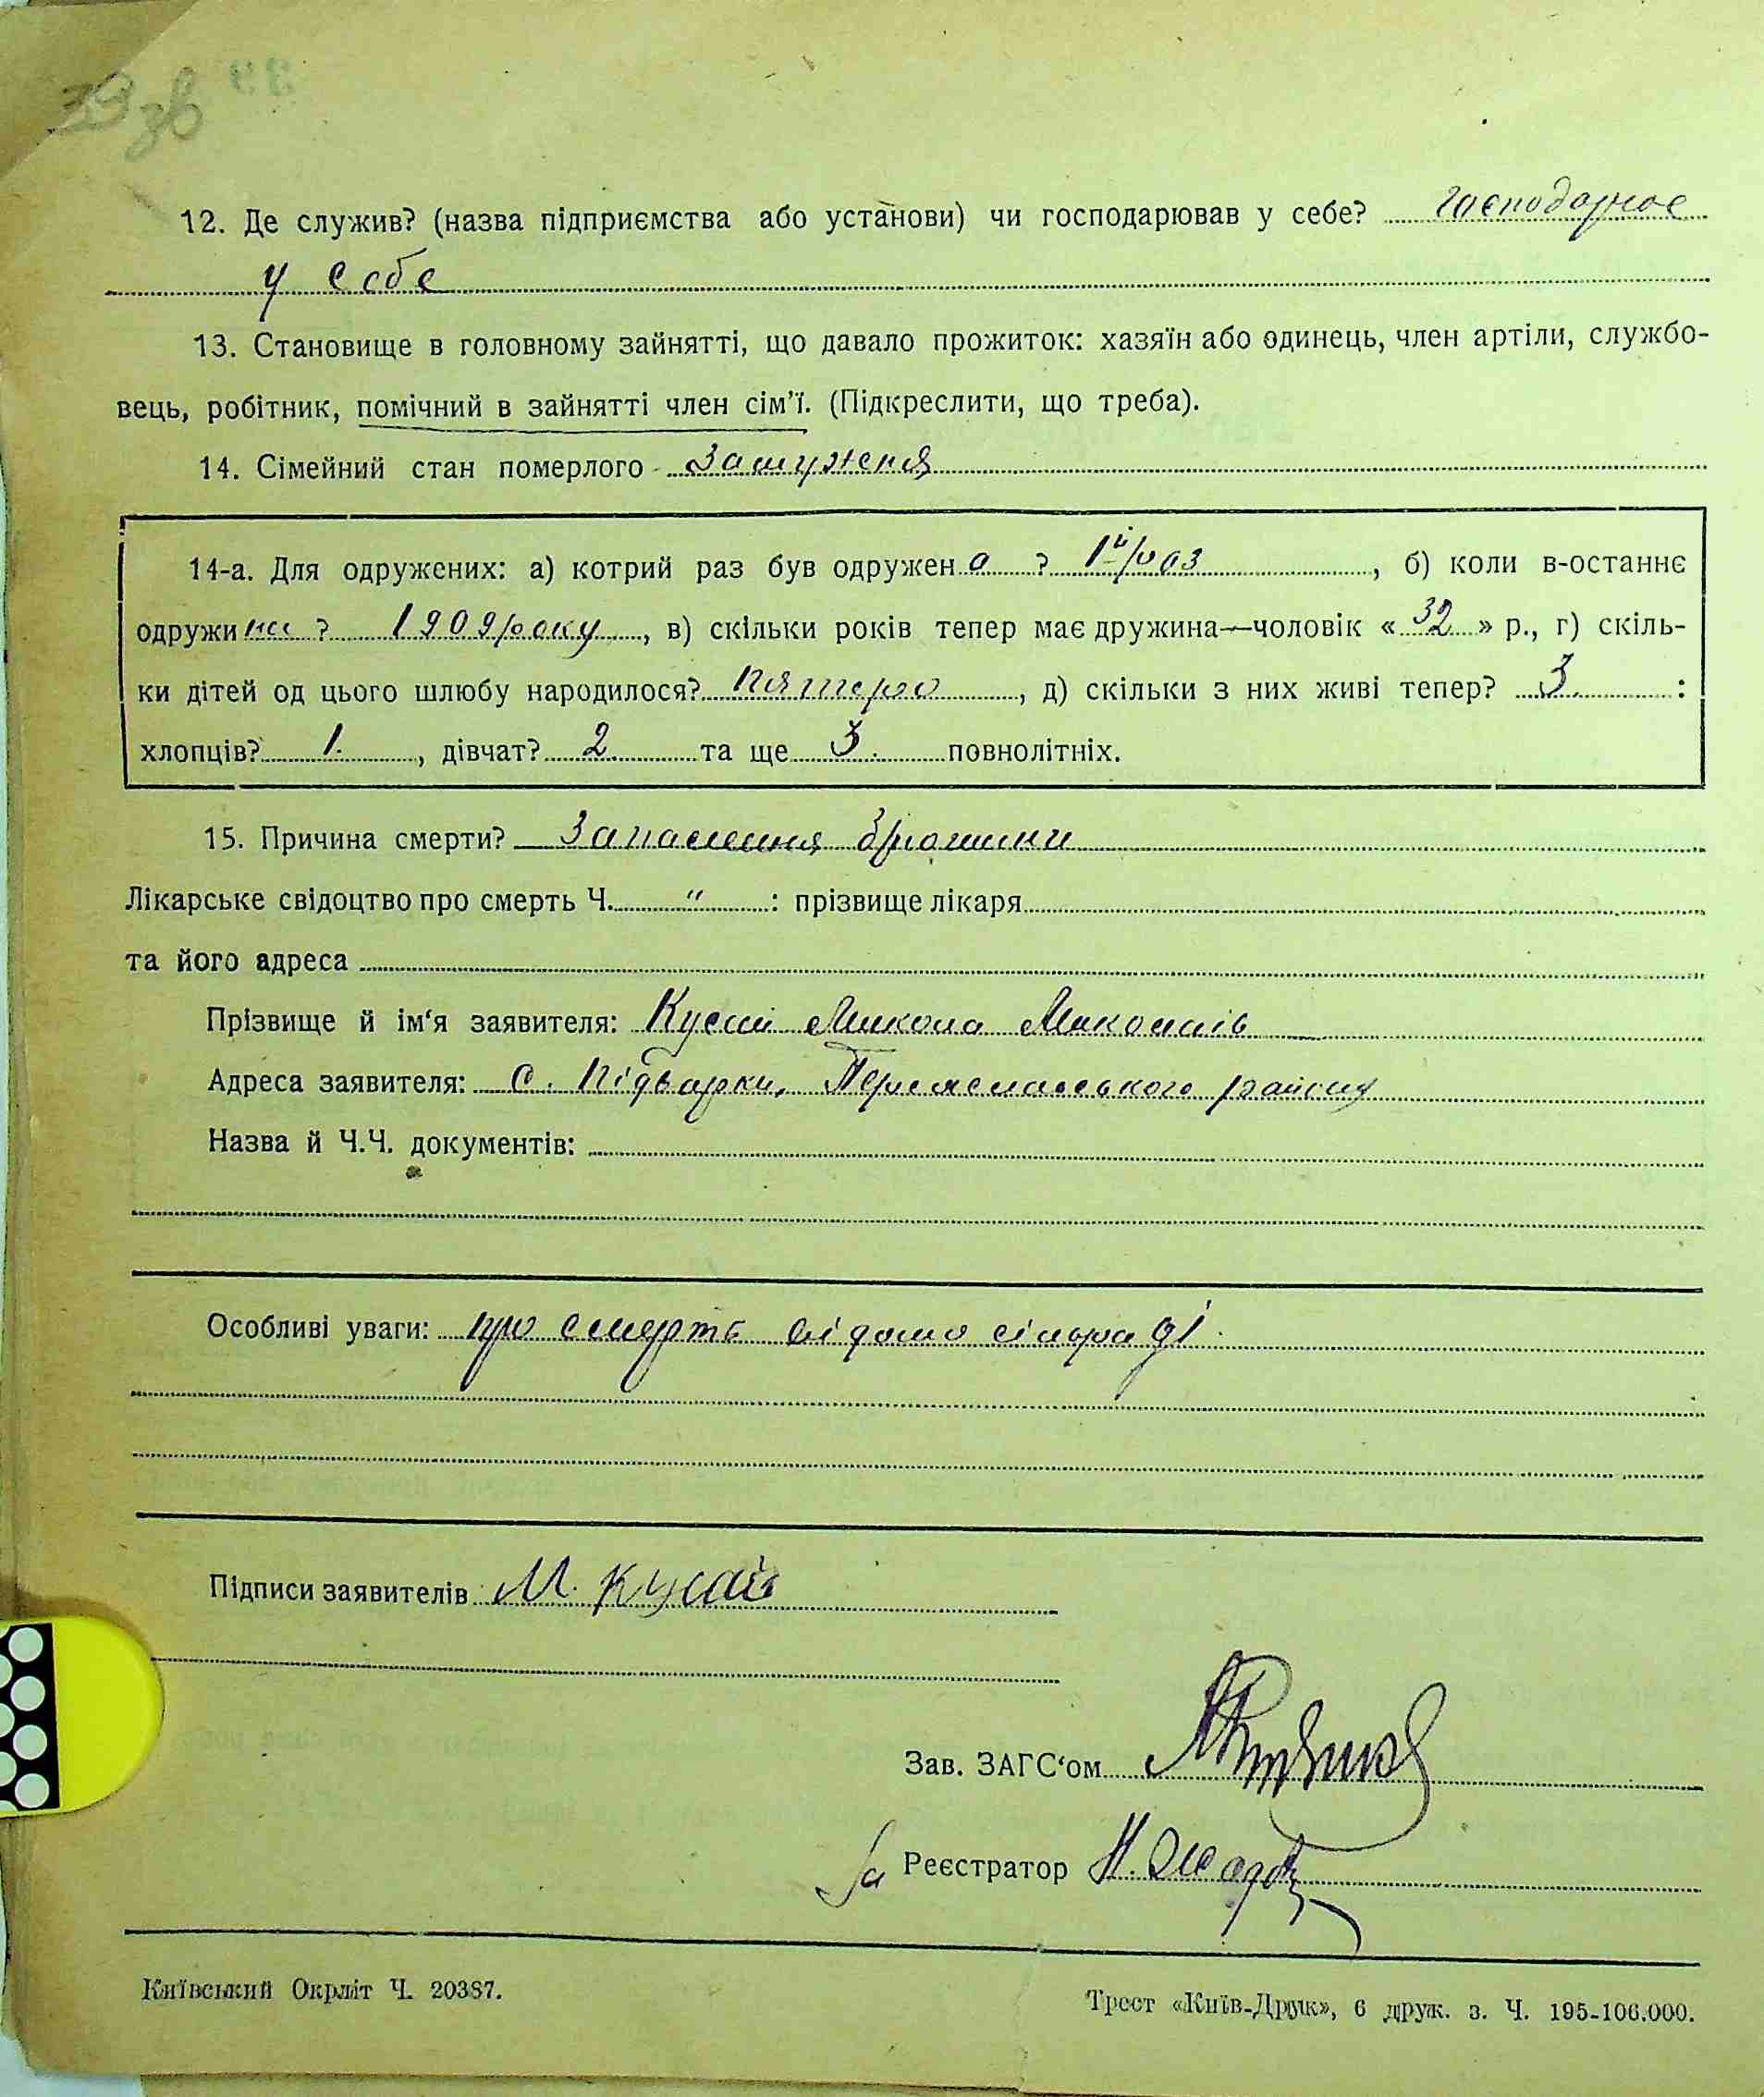 39 зв
12. Де служив? (назва підприємства або установи) чи господарював у себе? господарює
у себе
13. Становище в головному зайнятті, що давало прожиток: хазяїн або одинець, член артіли, службо-
вець, робітник, помічний в зайнятті член сім'ї. (Підкреслити, що треба).
14. Сімейний стан померлого замужня
14-а. Для одружених: а) котрий раз був одружен а ? 1й раз, б) коли в-останнє
одружи ? 1909 року, в) скільки років тепер має дружина—чоловік « 32 » р., г) скіль-
ки дітей од цього шлюбу народилося? пятеро, д) скільки з них живі тепер? 3 :
хлопців? 1., дівчат? 2 та ще 3. повнолітніх.
15. Причина смерти? Запалення
Лікарське свідоцтво про смерть Ч. " : прізвище лікаря
та його адреса
Прізвище й ім'я заявителя: Микола Миколаїв
Адреса заявителя: с. Підварки, Переяславського району
Назва й Ч.Ч. документів:
Особливі уваги: про смерть відомо сільраді.
Підписи заявителів М.
Зав. ЗАГС'ом
За Реєстратор Н.
Київський Окрліт Ч. 20387.
Трест «Київ-Друк», 6 друк. з. Ч. 195-106.000.